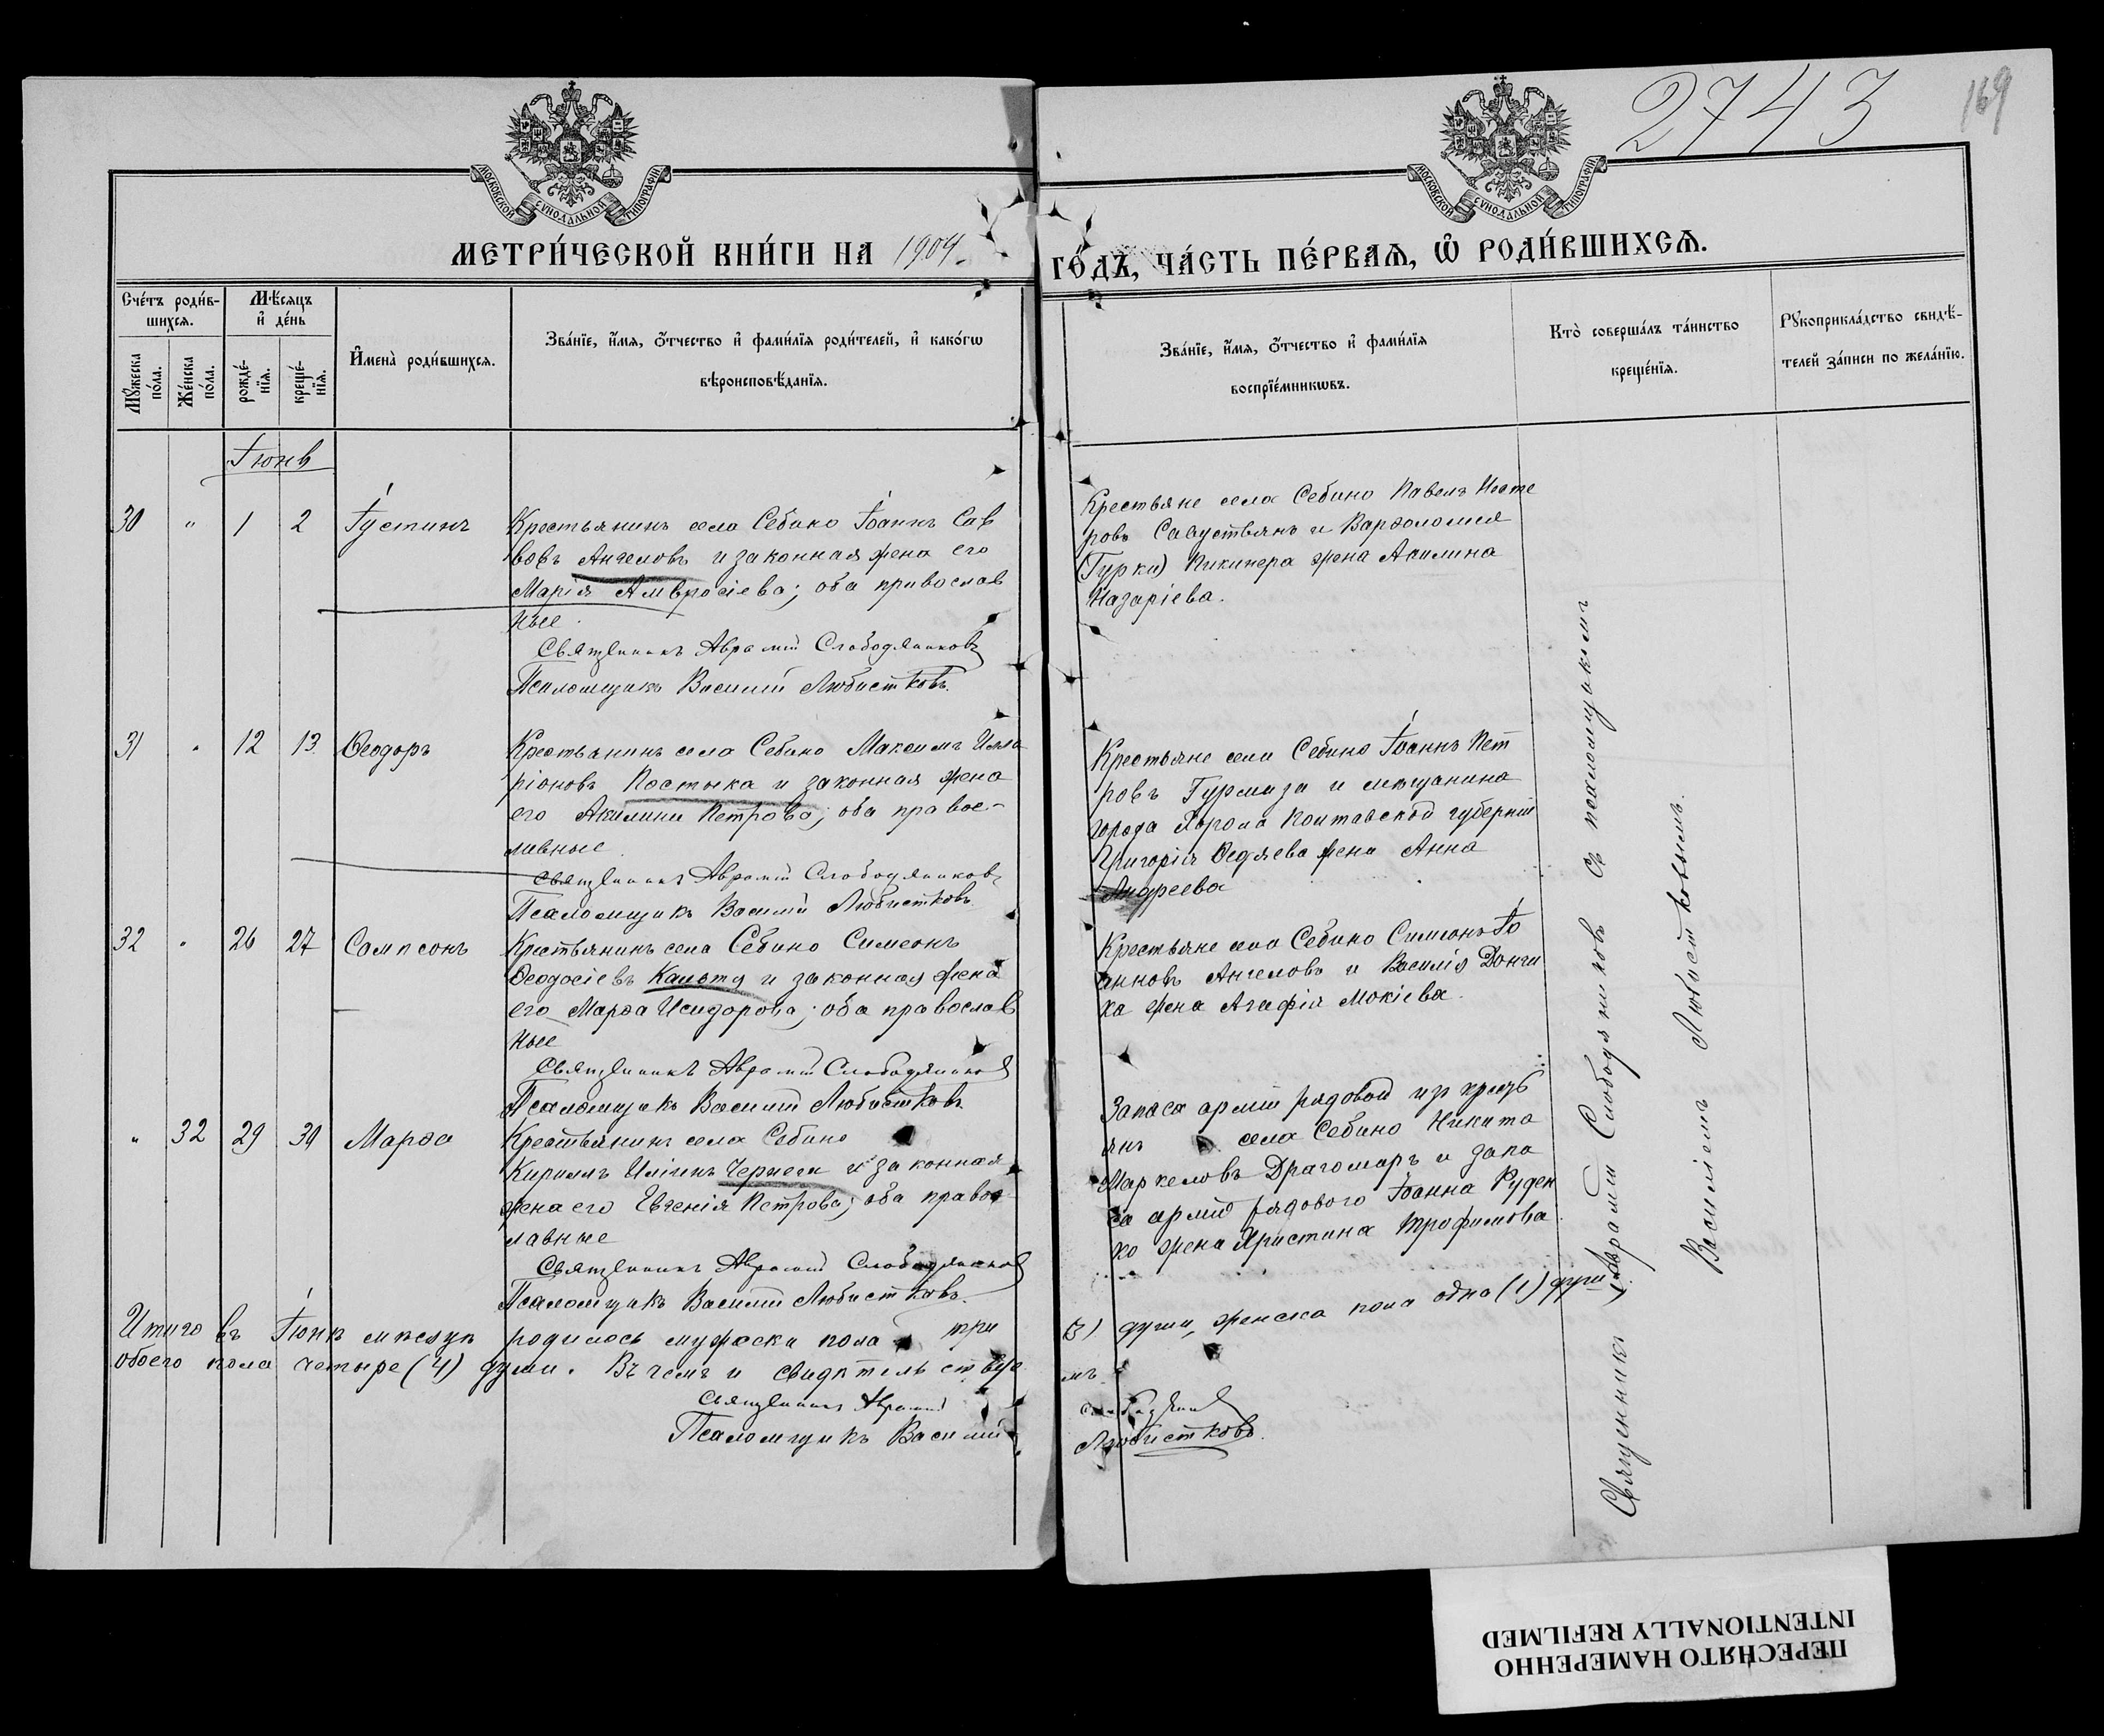 2743
169
МОСКОВСКОЙ СѴНОДАЛЬНОЙ ТИПОГРАФІИ
МОСКОВСКОЙ СѴНОДАЛЬНОЙ ТИПОГРАФІИ
МЕТРИ́ЧЕСКОЙ КНИ́ГИ НА 1904.
ГО́ДЪ, ЧА́СТЬ ПЕ́РВАЯ, Ѡ РОДИ́ВШИХСЯ.
Сче́тъ роди́в-
шихся.
Мѣ́сяцъ
и де́нь
Мꙋ́жеска по́ла.
Же́нска по́ла.
рожде́-
нїя.
креще́-
нїя.
Имена̀ роди́вшихся.
Зва́нїе, и́мя, ѻ́тчество и фами́лїя роди́телей, и како́гѡ
вѣроисповѣ́данїя.
Зва́нїе, и́мя, ѻ́тчество и фами́лїя
воспрїе́мникѡвъ.
Кто̀ соверша́лъ та́инство
креще́нїя.
Рꙋкоприкла́дство свидѣ́-
телей за́писи по жела́нїю.
Іюнь
30 " 1 2 Іустинъ
Крестьянинъ села Себино Іоаннъ Сав
вовъ Ангеловъ и законная жена его
Марія Амвросіева; оба православ
ные.
Священникъ Аврамій Слободяников
Псаломщикъ Василій Любистковъ.
Крестьяне села Себино Павелъ Несте
ровъ Савустьянъ и Варѳоломея
(Гурки) Пикинера жена Акилина
Назаріева.
31 " 12 13 Ѳеодоръ
Крестьянинъ села Себино Максимъ Илла
ріоновъ Постыка и законная жена
его Акилина Петрова; оба правос-
лавные
Священникъ Аврамій Слободяников
Псаломщикъ Василій Любистковъ
Крестьяне села Себино Іоаннъ Пет
ровъ Гурмаза и мѣщанина
города Хорола Полтавской губерніи
Григорія Ѳедяева жена Анна
Андреева
32 " 26 27 Сампсонъ
Крестьянинъ села Себино Симеонъ
Ѳеодосіевъ Капотя и законная жена
его Марѳа Исидорова; оба православ
ные
Священникъ Аврамій Слободяников
Псаломщикъ Василій Любистковъ
Крестьяне села Себино Симеонъ Іо
анновъ Ангеловъ и Василія Донги
ка жена Агафія Мокіева.
" 32 29 30 Марѳа
Крестьянинъ села Себино
Кириллъ Иліинъ Чернега и законная
жена его Евгенія Петрова; оба правос
лавные
Священникъ Аврамій Слободяников
Псаломщикъ Василій Любистковъ.
Запаса арміи рядовой изъ кресть
янъ села Себино Никита
Маркеловъ Драгомаръ и запа
са арміи рядового Іоанна Руден
ко жена Христина Трофимова.
Итого въ Іюнѣ мѣсяцѣ родилось мужеска пола три
(3) души, женска пола одна (1) душа,
обоего пола четыре (4) души. Въ чемъ и свидѣтельствуе
мъ.
Священникъ Аврамій
Слободяников
Псаломщикъ Василій
Любистковъ.
Священникъ Аврамій Слободяниковъ съ псаломщикомъ
Василіемъ Любистковымъ.
ПЕРЕСНЯТО НАМЕРЕННО
INTENTIONALLY REFILMED